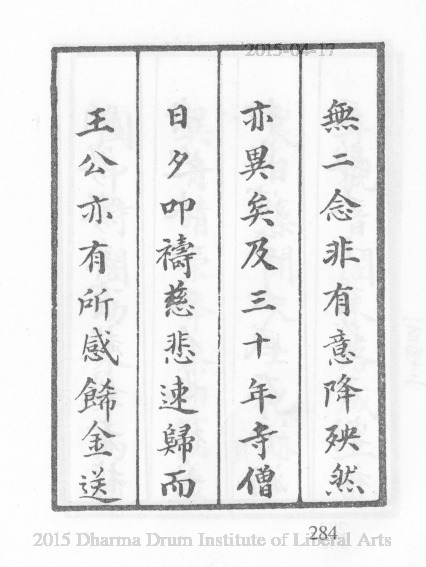 2015-04-17
無二念非有意降殃然
亦異矣及三十年寺僧
日夕叩禱慈悲速歸而
王公亦有所感餙金送
284
2015 Dharma Drum Institute of Liberal Arts